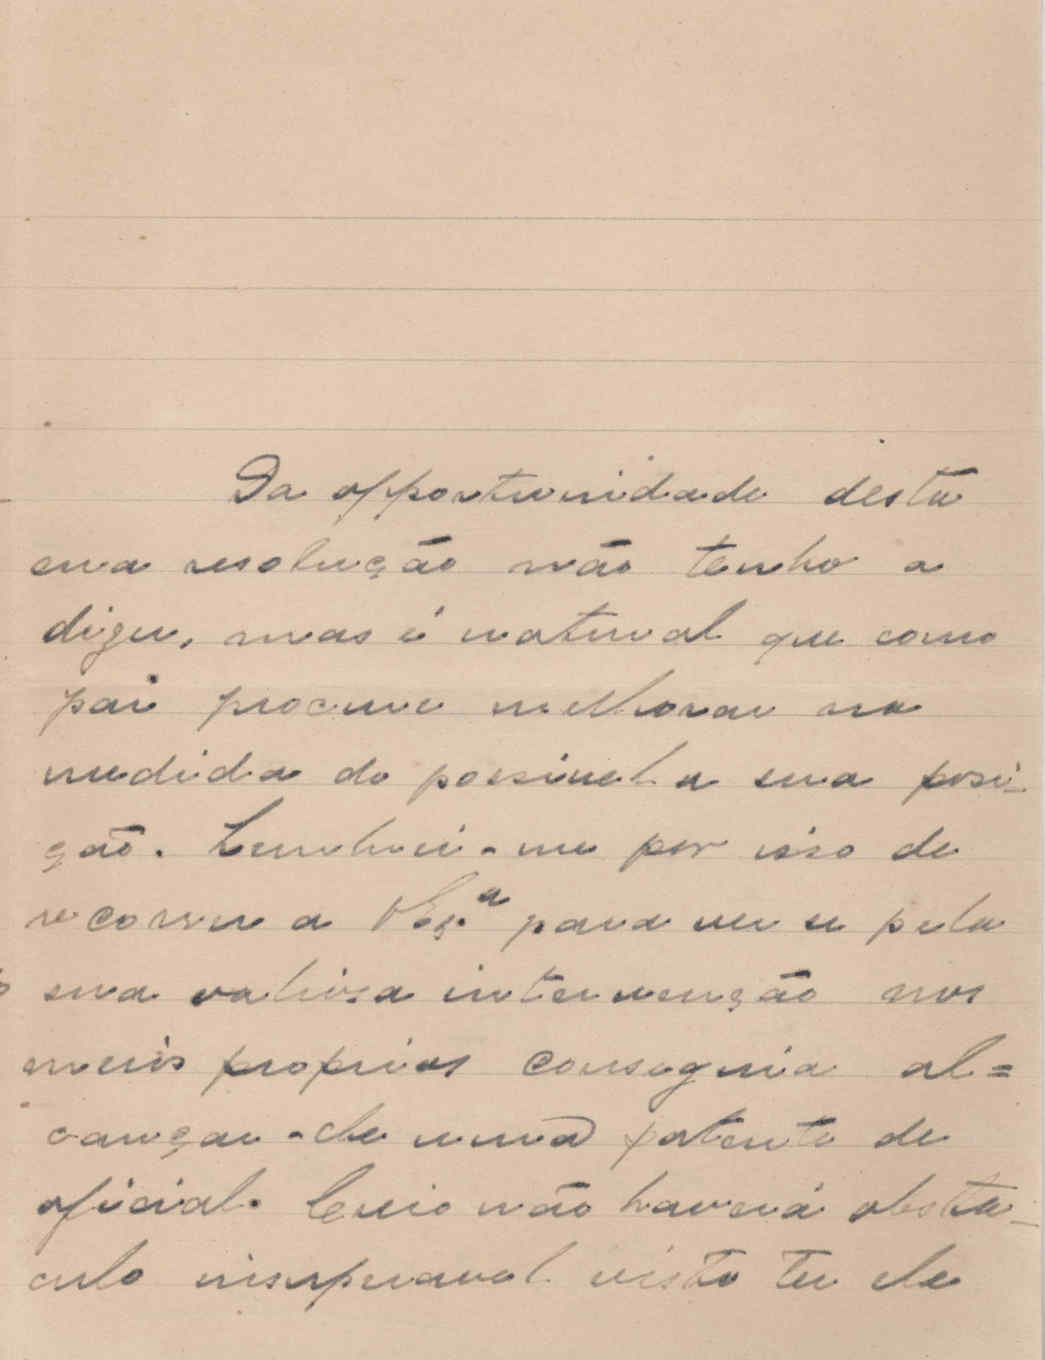 Da opportunidade desta
sua resolução não tenho a
dizer, mas é natural que como
pai procure melhorar na
medida do possivel a sua posi-
ção. Lembrei-me por isso de
recorrer a V. Ex.ª para ver se pela
sua valiosa intervenção nos
meios proprios conseguia al=
cançar-lhe uma patente de
oficial. Creio não haverá obsta-
culo insuperavel visto ter ele